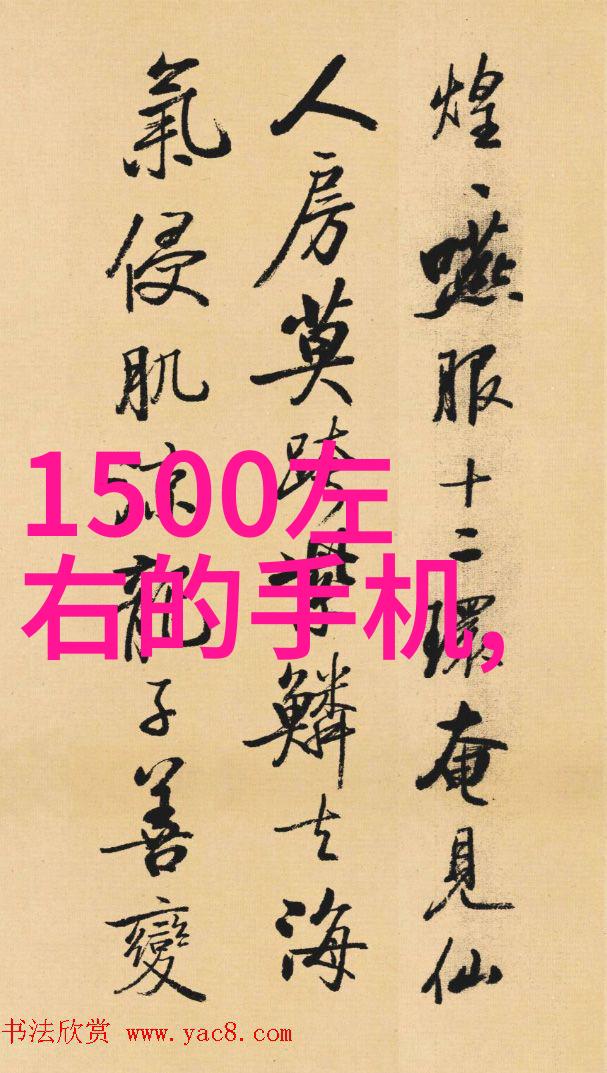 煌、嚥服十二環奄見仙
人房莫跨紫鱗去海
氣侵肌涼龍子善變
1500左
右的手机,
书法欣赏 www.yac8.com